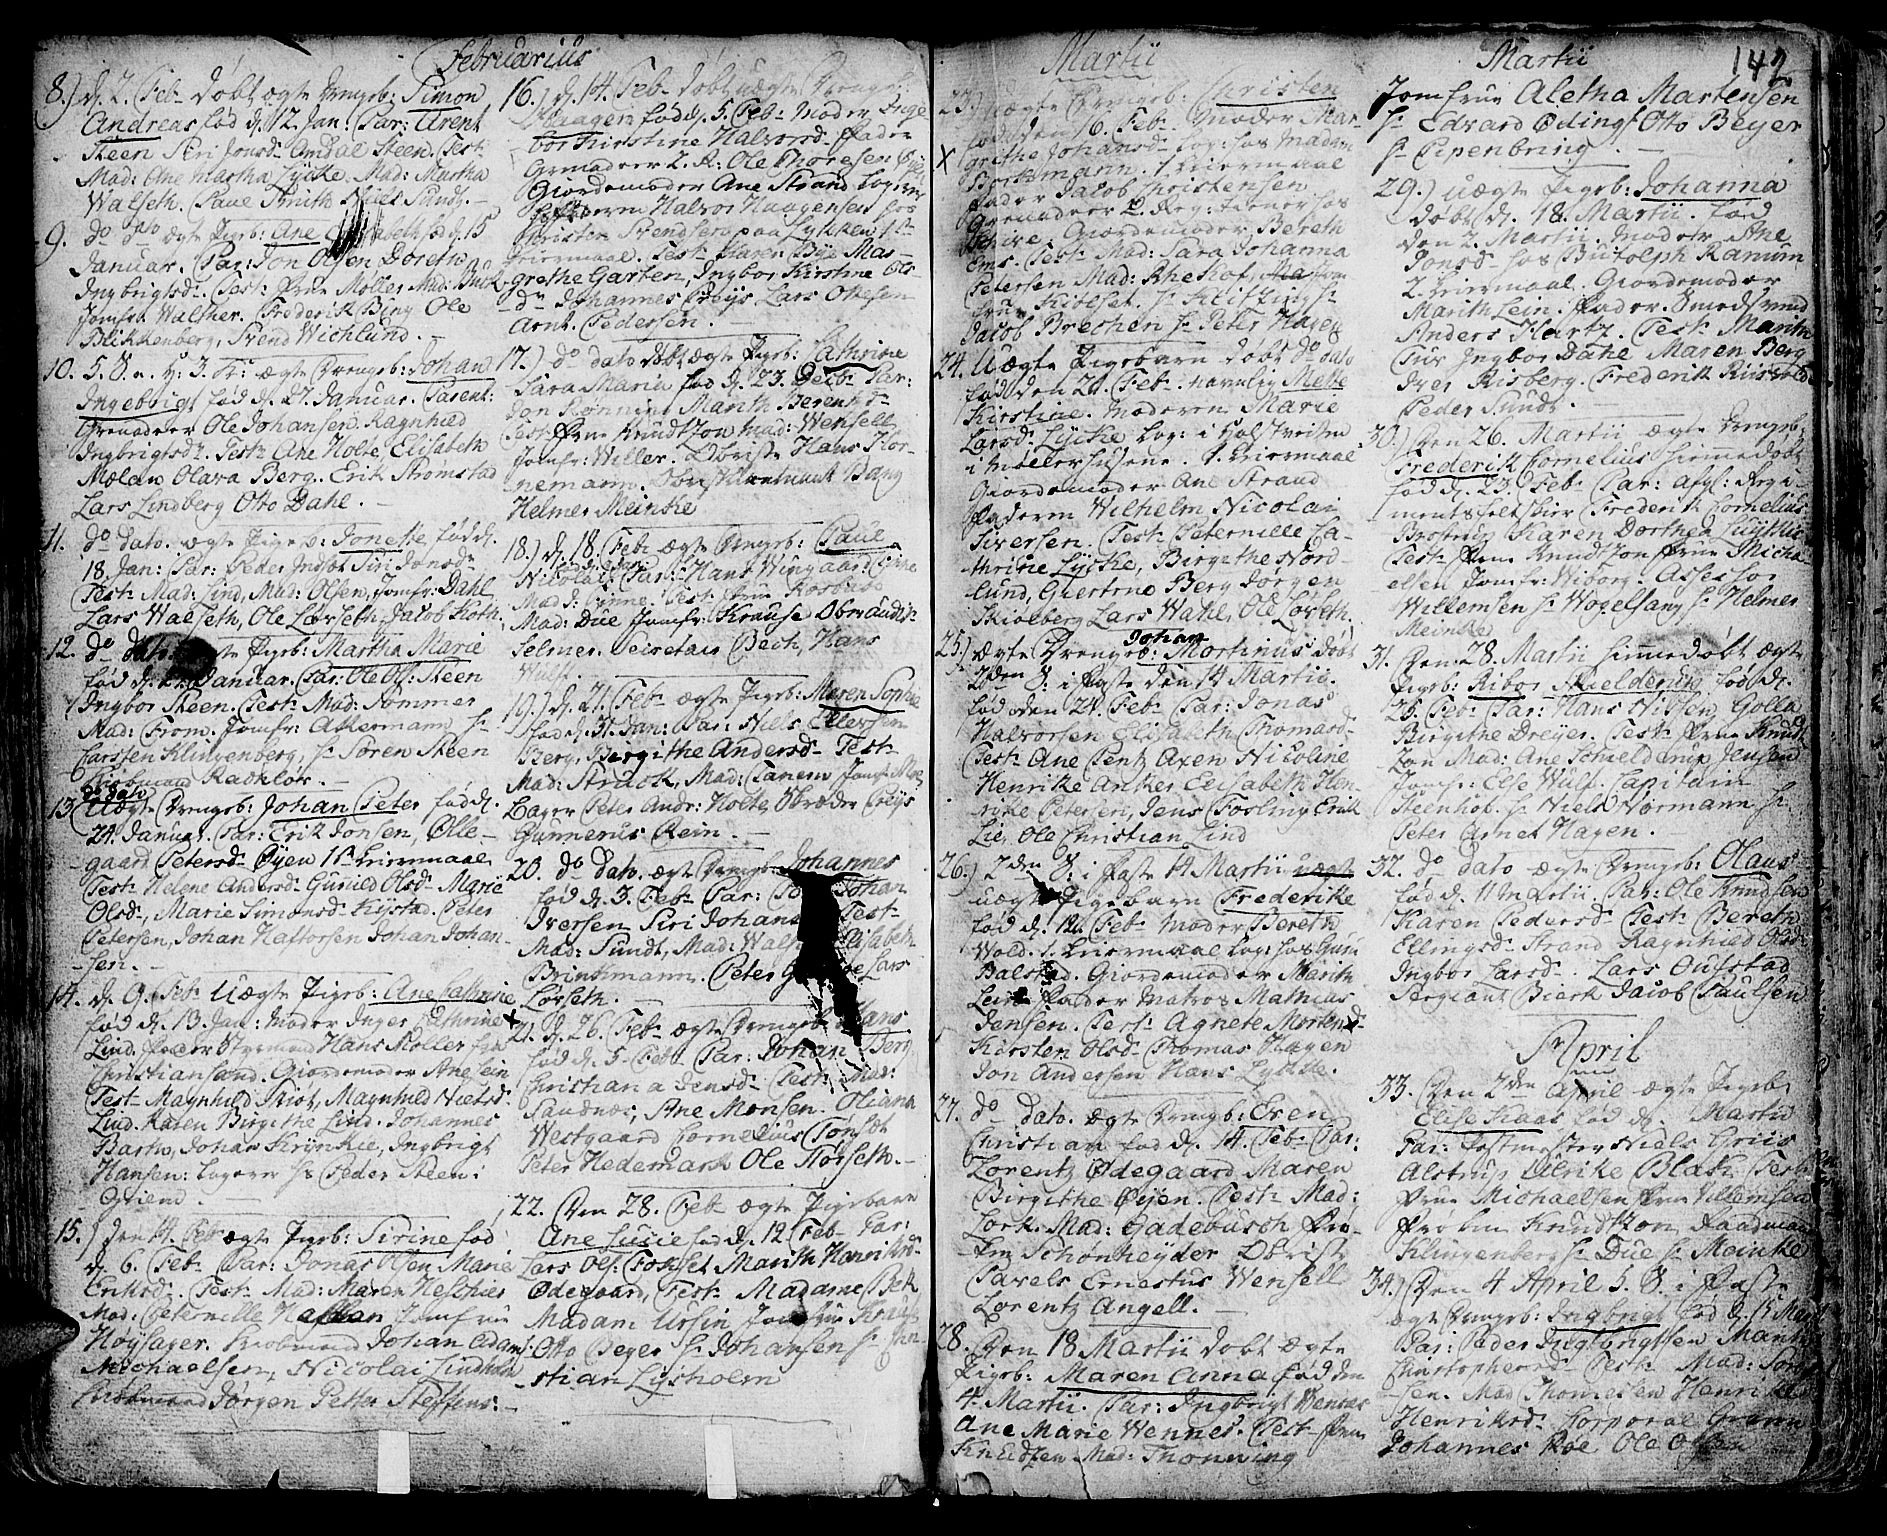 Februarius
8.) d. 2. Feb: døbt ægte Drengeb: Simon
Andreas fød d. 12. Jan: Par: Arent
Steen Siri Jonsd: Amdal Steen. Test:
Mad: Ane Martha Lycke. Mad: Martha
Walseth. Paul Smith Niels Sundt.
9. do dato ægte Pigeb: Ane Elisabeth fød d. 15
Januar. Par: Jon Olsen Doreth
Ingbrigtsd: Test: Frue Møller Mad: Buck
Jomfr: Walther. Frederik Bing Ole
Blikkenberg, Svend Wichlund.
10. 5. S. a. H: 3. K: ægte Drengeb: Johan
Ingebrigt fød d. 27. Januar. Parent:
Grenadeer Ole Johansen. Ragnhild
Ingbrigtsd: Test: Ane Holte, Elisabeth
Mælan Olava Berg. Erik Strømstad
Lars Lindberg Otto Dahl.
11. do dato. ægte Pigeb: Jonette fød d.
18. Jan: Par: Peder Siri Jonsd:
Test: Mad: Lind, Mad: Olsen, Jomfr: Dahl
Lars Walseth, Ole Lørseth, Jacob Roth.
12. do dato. ægte Pigeb: Martha Marie
fød d. Januar. Par: Ole Ol: Steen
Ingbor Steen. Test: Mad: Sommer
Mad: From. Jomfr: Akkermann hr
Carsten Klingenberg, hr Søren Steen
Kiøbmand Radklor.
13. do dato Uægte Drengeb: Johan Peter fød d.
24. Januar. Par: Erik Jonsen, Olle-
gaard Petersd: Øyen 1ste Leiermaal
Test: Helene Andersd: Gunild Olsd: Marie
Olsd:, Marie Simonsd: Kystad. Peter
Petersen, Johan Haftorsen Johan Johan-
sen.
14. d. 9. Feb: Uægte Pigeb: Ane Cathrine
fød d. 13. Jan: Moder Inger Cathrine
Lind. Fader Styrmand Hans Møller fra
Christiansand. Giordemoder Ane Lein
Test: Magnhild Friøt, Magnhild Nielsd:
Lind. Karen Birgithe Lind. Johannes
Barth, Johan Krynkie, Ingbrigt
Hansen: Logerer hos Peder Steen i
Grend.
15.) den 14. Feb: ægte Pigeb: Sirine fød
d. 6. Feb: Par: Jonas Olsen Marie
Eriksd: Test: Mad: Maren
Mad: Peternille Haftan Jomfrue
Høysager. Kiøbmand Johan Adam
Michaelsen, Nicolai Lindholm
Kiøbmand Jørgen Petter Steffens:
16.) d. 14. Feb: døbt uægte Drengeb:
Haagen fød d. 5. Feb: Moder Inge
bor Kirstine Halvorsd: Fader
Grenadeer 2. R: Ole Thoresen
Giordemoder Ane Strand Logerer
Halvor Haagensen hos
Christen Svendsen paa Lykken 1ste
Leiermaal. Test: Karen Bye Mar-
grethe Garten, Ingbor Kirstine Ols-
dr Johannes Lars Ottesen
Arnt Pedersen.
17.) do dato døbt ægte Pigeb: Cathrine
Sara Maria fød d. 23. Decb: Par:
Jon Rønning Marith Berentsd:
Test: Frue Knudtzon Mad: Wensell
Jomfr: Willer. Obriste Hans Hor-
nemann. Bang
Helmer Meinke
18.) d. 18. Feb: ægte Drengeb: Paul
Nicolai Par: Hans Wingaar
Mad: Test: Frue Rosbeck
Mad: Due Jomfr: Krause Obraudit:
Selmer. Secretair Bech, Hans
Wulf.
19.) d. 21. Feb: ægte Pigeb: Maren Sophie
fød d. 31. Jan: Par: Niels Ellersen
Berg. Bergithe Andersd: Test:
Mad: Struck, Mad: Tanem Jomfr: Moe
Bager Peter Andr: Holte, Creÿs
Gunnerus Rein.
20. do dato. ægte Drengeb: Johannes
fød d. 3. Feb: Par: Johan
Iversen Siri Johans Test:
Mad: Sundt, Mad: Elisabeth
Brinchmann. Peter Lars
Lørseth.
21. d. 26. Feb: ægte Drengeb: Hans
fød d. 5. Feb: Par: Johan Berg
Christiana Jensd: Test: Mad:
Sandnæs, Ane Monsen. Oliana
Westgaard Cornelius Tønset
Peter Hedemark Ole Størseth.
22. Den 28. Feb: ægte Pigebarn
Ane Lucie fød d. 12. Feb: Par:
Lars Ols: Foxset Marith Henriksd:
Ødegaard, Test: Madame Beck
Madam Ursin Jomfrue Kraus
Otto Beyer hr Johansen hr Chri-
stian Lysholm
Martii
23.) uægte Drengeb: Christen
fød den 16. Feb: Moder Mar-
grethe Johansd: Log: hos Madm
Brockmann. 1. Leiermaal
Fader Jacob Christensen
Grenadeer 2. Reg: tiener hos
Giordemoder Bereth
Ems. Test: Mad: Sara Johanna
Petersen Mad: Rhehof,
frue Kiølset. hr Klissing hr
Jacob Brechen hr Peter Hagen
24. Uægte Pigebarn døbt do dato
fød den 20. Feb: navnlig Mette
Kirstine. Moderen Marie
Larsd: Lycke Log: i Holstveiten
i Møllerhusene. 1. Leiermaal
Giordemoder Ane Strand
Faderen Wilhelm Nicolai
Siversen. Test: Peternille Ca-
thrine Lycke, Birgithe Nord-
lund, Giertrue Berg Jørgen
Skiølberg Lars Wahl, Ole Lørseth.
25.) ægte Drengeb: Johan Mortinus døbt
2den S: i Faste den 14 Martii.
fød den 21. Feb: Par: Jonas
Halvorsen Elisabeth Thomasd:
Test: Ane Pentz Axen Nicoline
Henrike Anker Elisabeth Hen-
rike Petersen, Jens Fosling Erik
Lie, Ole Christian Lind
26.) 2den S: i Faste 14 Martii uægt
uægte Pigebarn Frederike
fød d. 12. Feb: Moder Bereth
Wold. 1. Leiermaal Log: hos Guri
Balstad Giordemoder Marith
Lein Fader Matros Mathias
Jensen. Test: Agnete Mortensd:
Kirsten Olsd: Thomas Hagen
Jon Andersen Hans Lykke.
27. do dato. ægte Drengeb: Even
Christian fød d. 14. Feb: Par:
Lorentz Ødegaard Maren
Birgithe Øyen. Test: Mad:
Lork. Mad: Gadebusch Frø-
ken Schønheyder Obrist
Pavels Ernestus Wensell
Lorentz Angell.
28. Den 18 Martii døbt ægte
Pigeb: Maren Anna fød den
4. Martii. Par: Ingbrigt Wennes
Ane Marie Wennes. Test: Frue
Knudtzen Mad: Thonning
Martii 142
Jomfrue Aletha Martensen
hr Edvard Øding Otto Beyer
hr Pipenbring.
29.) uægte Pigeb: Johanna
døbt d. 18. Martii. fød
den 2. Martii. Moder Ane
Jonsd: hos Butolph Ranum
2. Leiermaal. Giordemoder
Marith Lein. Fader Smedsvend
Anders Hartz. Test: Marith
Friis Ingbor Dahl Maren Berg
Iver Risberg. Frederik
Peder Sundt.
30.) Den 26. Martii ægte Drengeb:
Frederik Cornelius hiemmedøbt
fød d. 23. Feb: Par: afgl: Regi-
mentsfeltskier Frederik Cornelius
Brostrup Karen Dorthea
Test: Frue Knudtzon Frue Micha-
elsen Jomfr: Wiborg. Assessor
Willemsen hr Vogelsang hr Helmer
Meinke
31. Den 28. Martii hiemmedøbt ægte
Pigeb: Aibor Skielderup fød d.
25. Feb: Par: Hans Nissen Golla
Birgithe Dreyer. Test: Frue Knudt
zon Mad: Ane Schielderup Jensen
Jomfr: Else Wulf. Capitain
Steenhof. hr Niels Normann hr
Peter Arnet Hagen.
32. do dato ægte Drengeb: Olaus
fød d. 11 Martii. Par: Ole Knudsen
Karen Pedersd: Test: Bereth
Ellingsd: Strand Ragnhild Olsd:
Ingbor Larsd: Lars Oustad
Sergiant Bierk Jacob Paulsen
April
33. Den 2den April ægte Pigeb:
Elise Kaas fød d. Martii
Par: Postmester Niels Griis
Alstrup Ulrike Blak. Test:
Frue Michaelsen Frue Willemsen
Frøken Knudtzon Raadmand
Klingenberg hr Due hr Meinke
34.) Den 4 April 5. S: i Faste
ægte Drengeb: Ingbrigt fød d. 15 Mart
Par: Peder Ingbrigtsen Marith
Christophersd: Test: Mad:
sen. Mad Thomesen Henrikke
Henriksd: Corporal Gram
Johannes Røe Ole Olsen